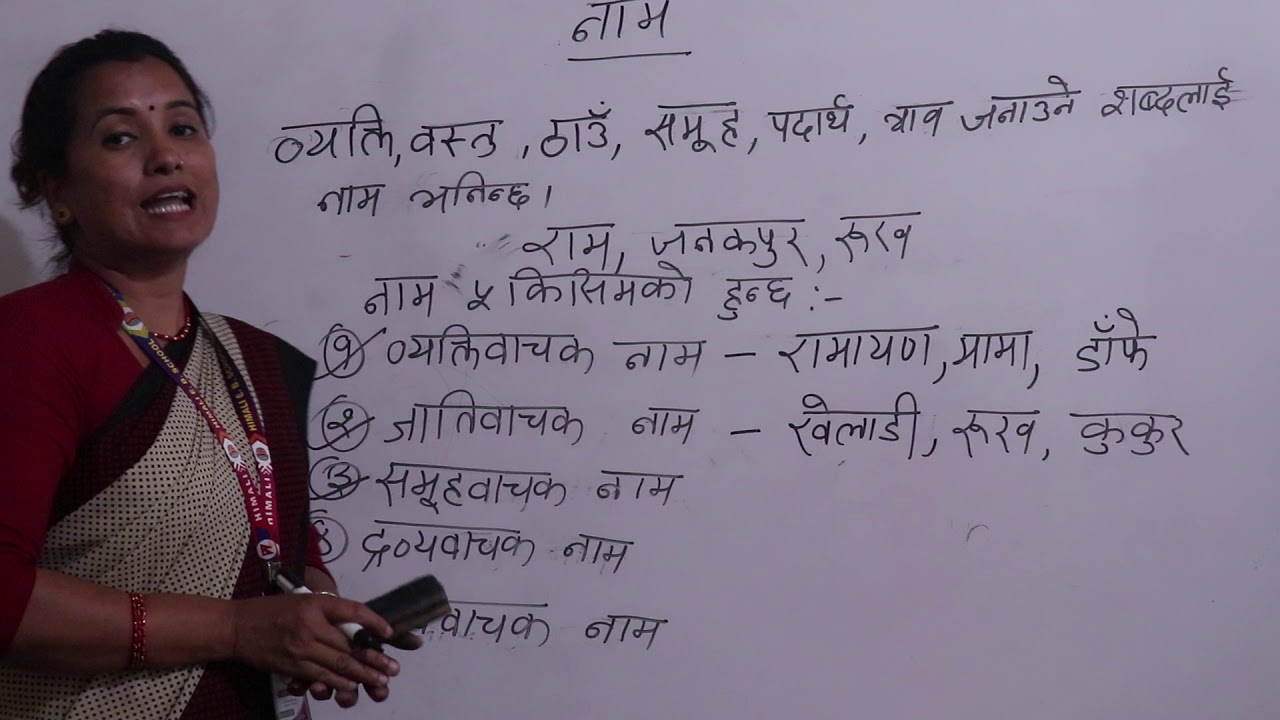 नाम
व्यक्ति, वस्तु, ठाउँ, समूह, पदार्थ, भाव जनाउने शब्दलाई
नाम भनिन्छ।
राम, जनकपुर, रूख
नाम ५ किसिमको हुन्छ :-
१ व्यक्तिवाचक नाम - रामायण, प्रामा, डाँफे
२ जातिवाचक नाम - खेलाडी, रूख, कुकुर
३ समूहवाचक नाम
४ द्रव्यवाचक नाम
वाचक नाम
HIMALI E.B. SCHOOL
HIMALI E.B.
HIMALI
HIMALI